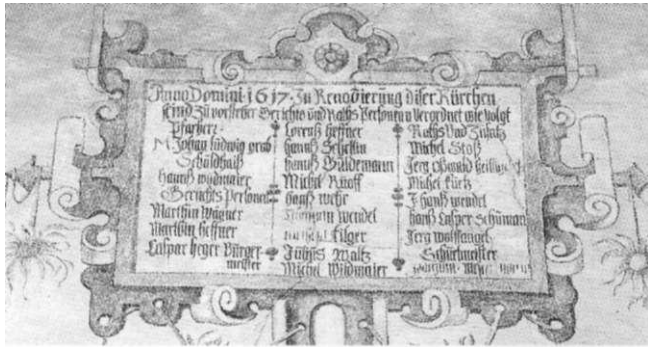 Anno Domini 1617. Zu Renovierung diser Kürchen
seind Zu vorsteher Gerichts und Raths Personen Verordnet wie volgt
Pfarherr
M Johan Ludwig
Schuldhaiß
Hannß Widmaier
Gerichts Personen
Marthin Wagner
Marthin Heffner
Caspar Heger Bürger-
meister
Lorentz Heffner
Hannß
Hannß Guldemann
Michel Knoff
Hannß Wehr
Wendel
Filger
Waltz
Michel Widmaier
Raths Und Zusatz
Michel Stoß
Jerg Oßwald
Michel
Hannß Wendel
Hannß Casper Schuman
Jerg Wolffangel